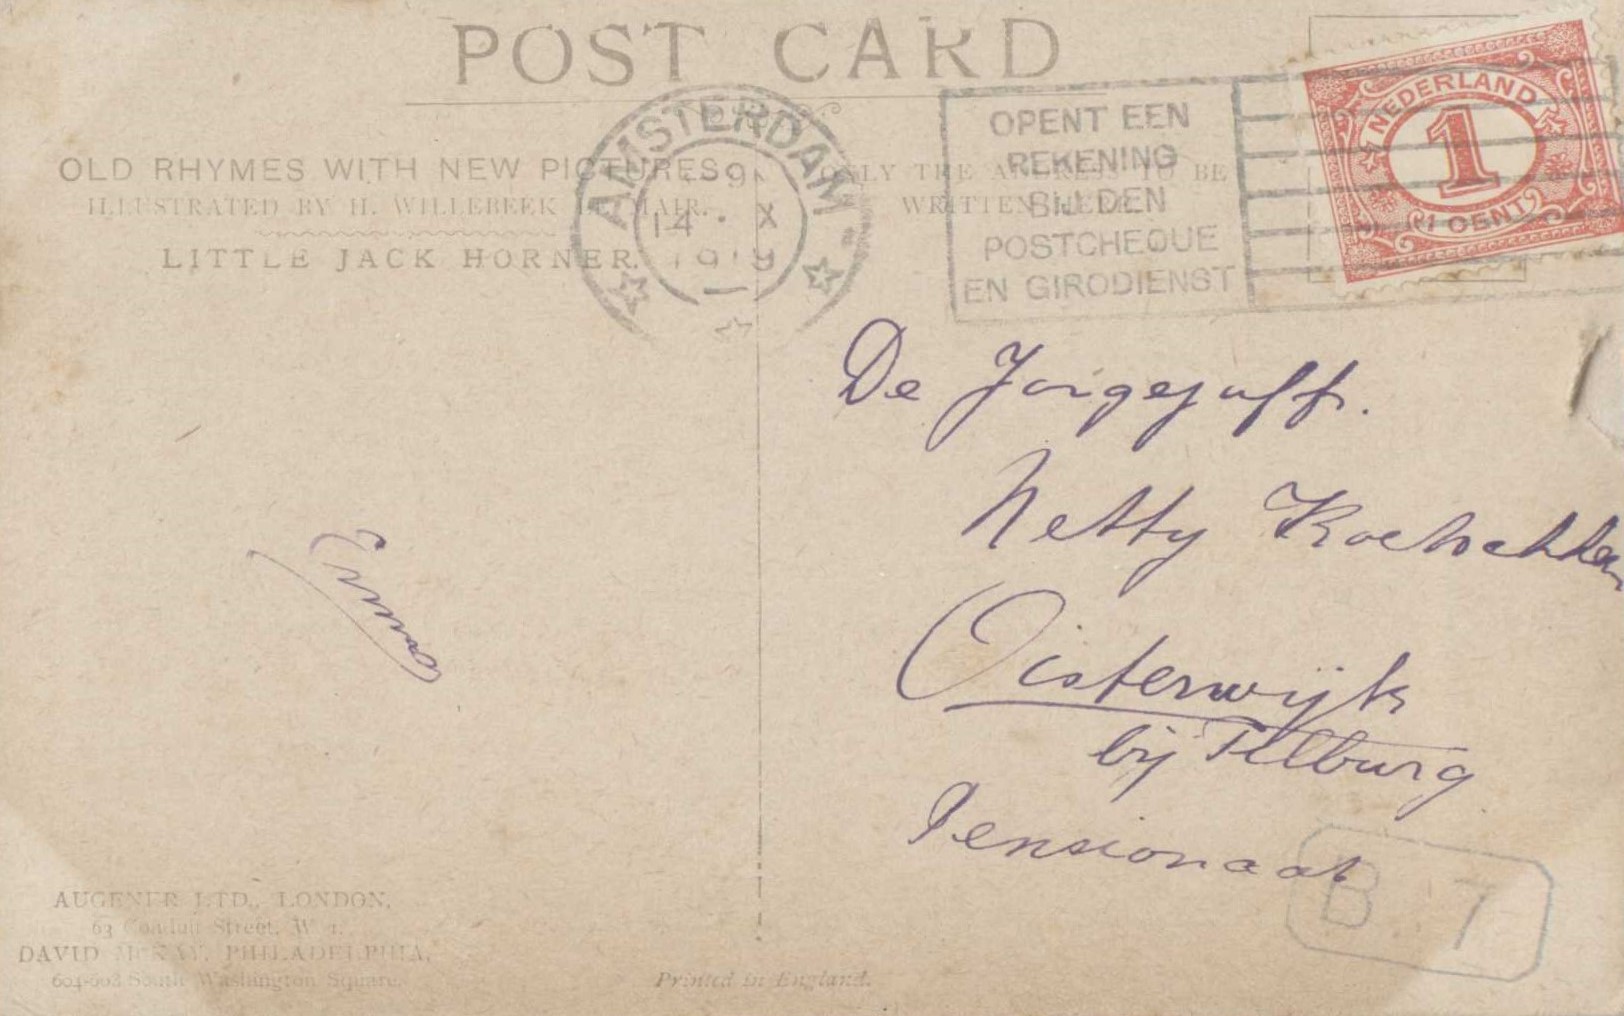 POST CARD
OLD RHYMES WITH NEW PICTURES
ILLUSTRATED BY H. WILLEBEEK LE MAIR.
LITTLE JACK HORNER.
AMSTERDAM
14 X
1919
ONLY THE ADDRESS TO BE
WRITTEN HERE
OPENT EEN
REKENING
BIJ DEN
POSTCHEQUE
EN GIRODIENST
NEDERLAND
1
1 CENT
De Jongejuffr.
Netty
Oisterwijk
bij Tilburg
Pensionaat
B 7
AUGENER LTD., LONDON,
63 Conduit Street, W. 1.
DAVID McKAY, PHILADELPHIA,
604-608 South Washington Square.
Printed in England.